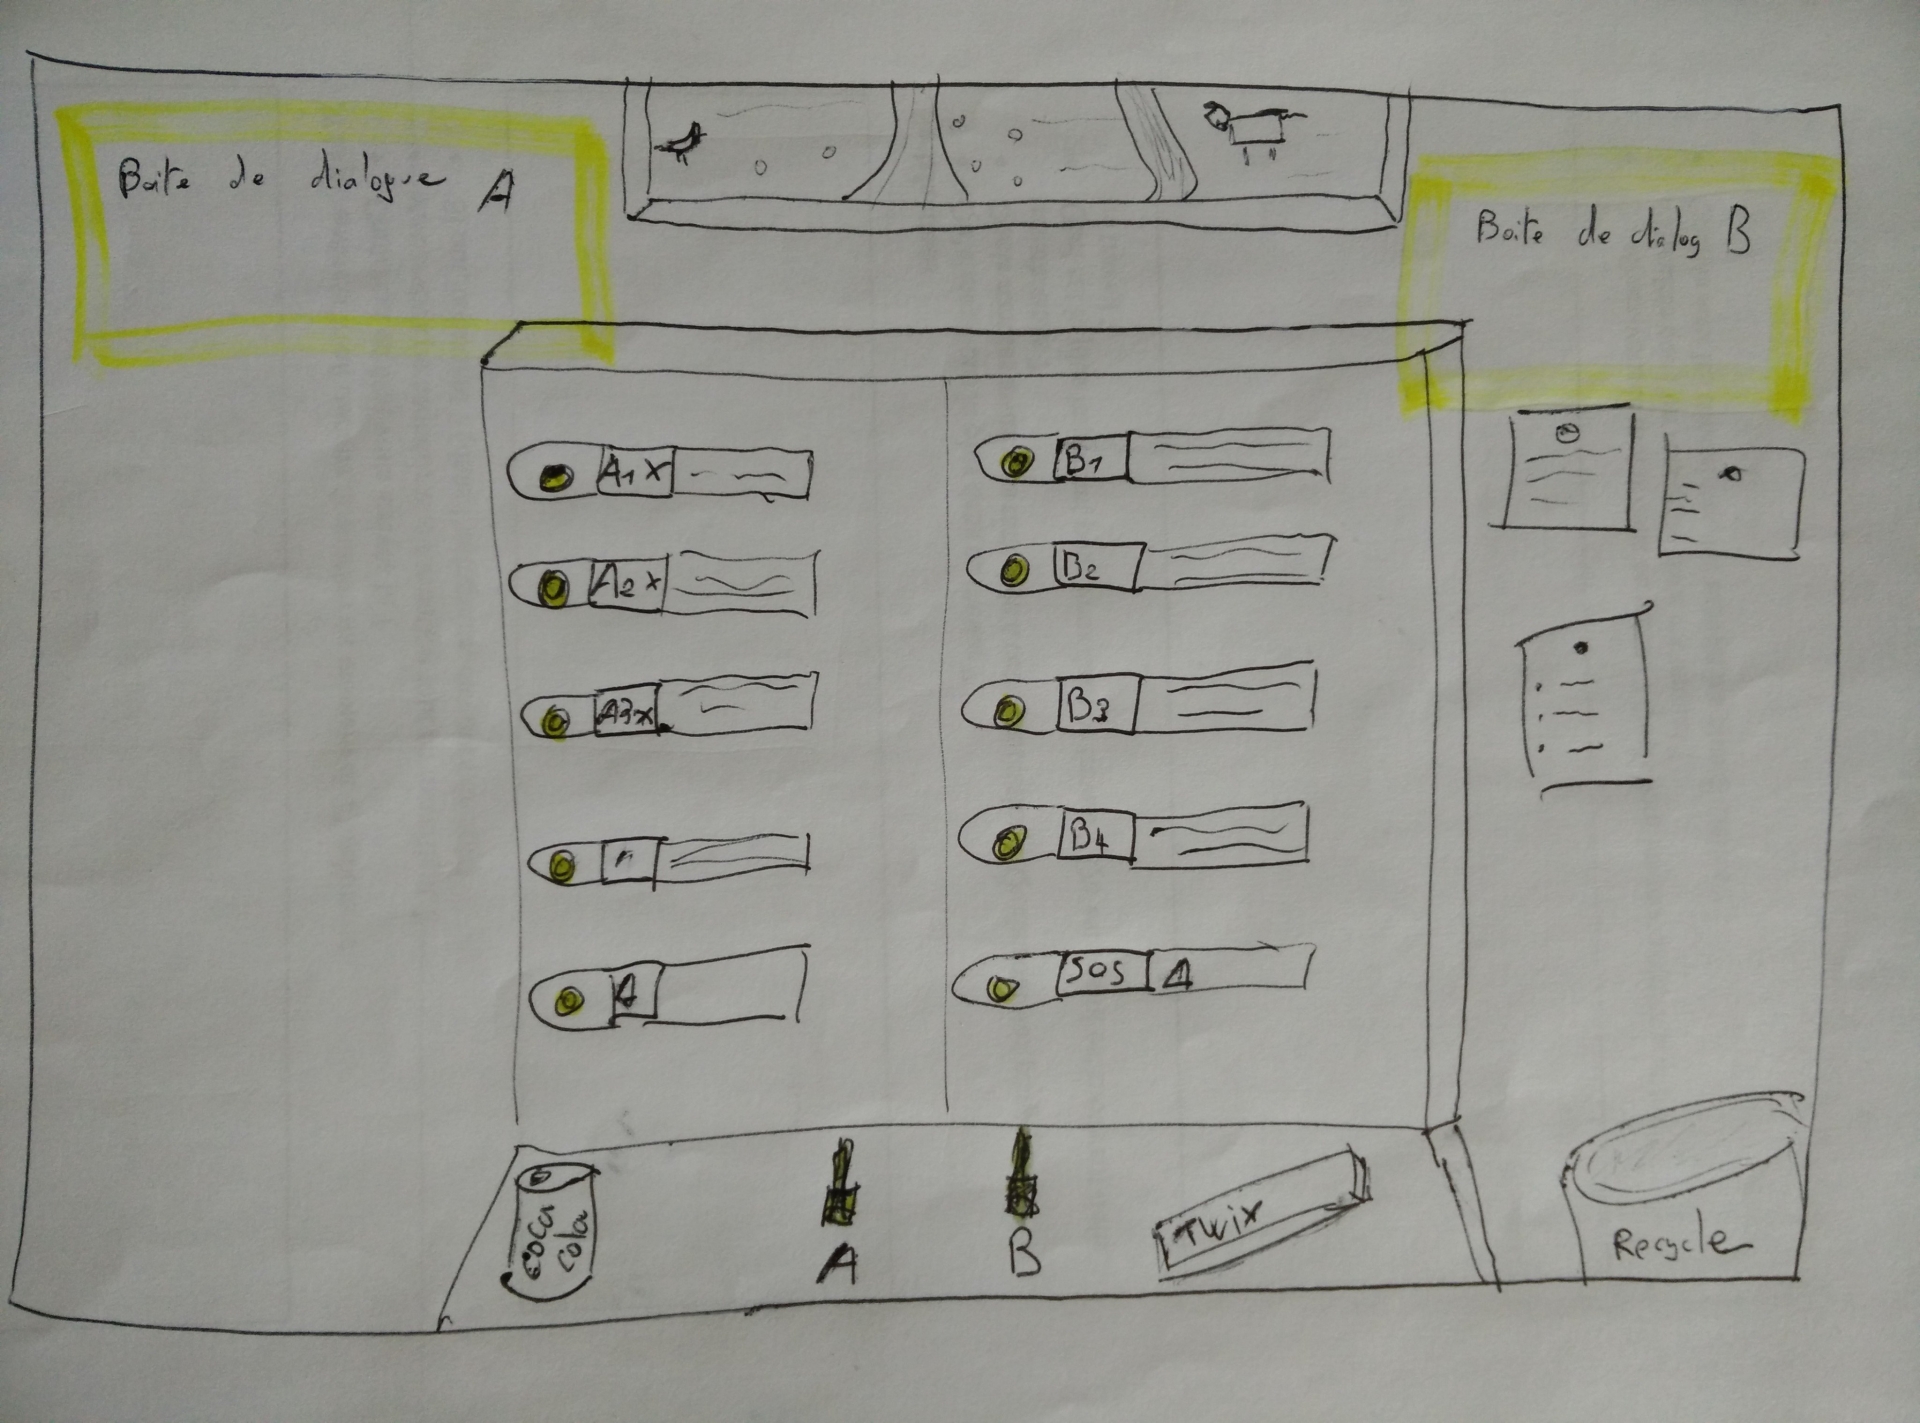 Boite de dialogue A
Boite de dialog B
A1 x
A2 x
A3x
A
B1
B2
B3
B4
SOS A
coca
cola
A
B
Twix
Recycler